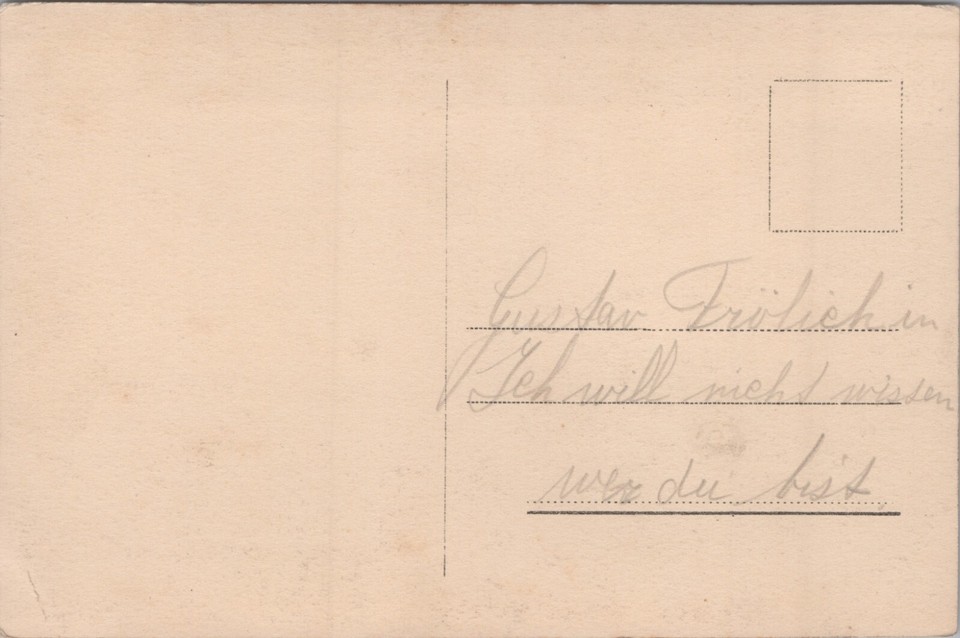 Gustav Frölich in
Ich will nicht wissen
wer du bist